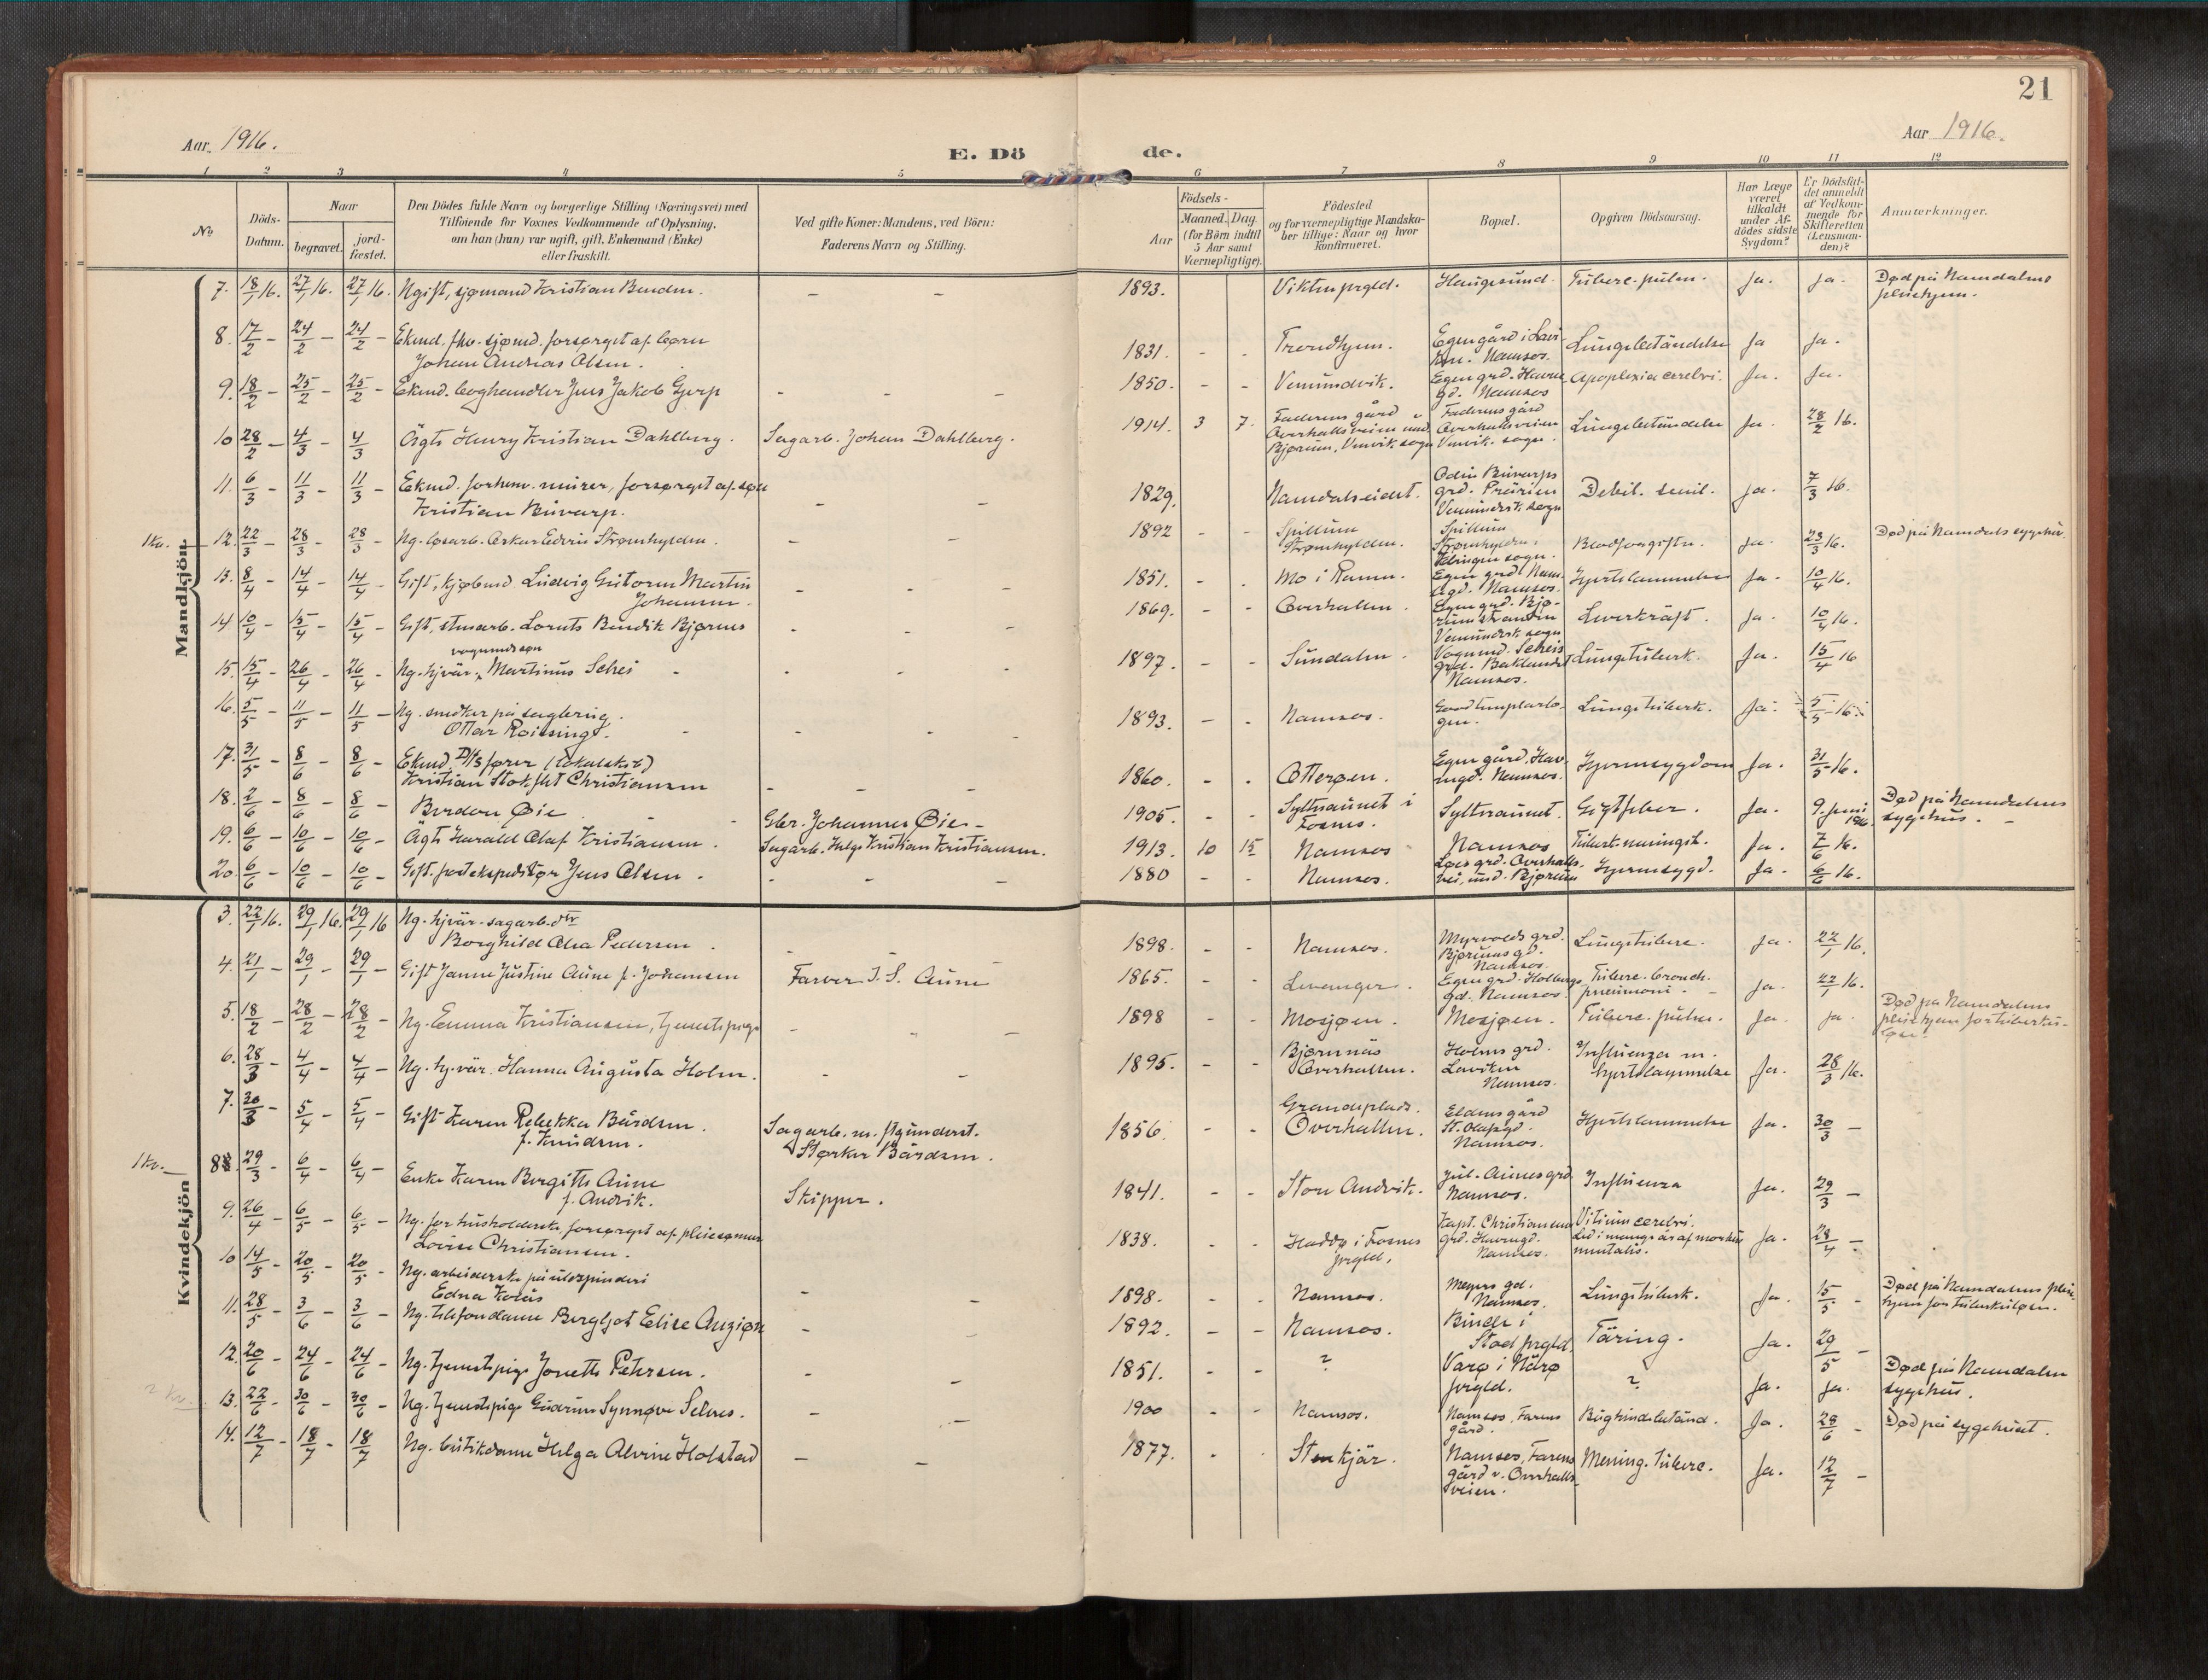 21
Aar 1916.
E. Dö de.
Aar 1916.
1 2 3 4 5 6 7 8 9 10 11 12
No
Döds-Datum.
Naar
begravet.
jord-fæstet.
Den Dödes fulde Navn og borgerlige Stilling (Næringsvei) med
Tilföiende for Voxnes Vedkommende af Oplysning,
om han (hun) var ugift, gift, Enkemand (Enke)
eller fraskilt.
Ved gifte Koner: Mandens, ved Börn:
Faderens Navn og Stilling.
Födsels-
Aar
Maaned. Dag.
(for Börn indtil
5 Aar samt
Værnepligtige).
Födested
og for værnepligtige Mandska-
ber tillige: Naar og hvor
konfirmeret.
Bopæl.
Opgiven Dödsaarsag.
Har Læge
været
tilkaldt
under Af-
dödes sidste
Sygdom?
Er Dödsfal-
det anmeldt
af Vedkom-
mende for
Skifteretten
(Lensman-
den)?
Anmærkninger.
Mandkjön
7. 18/1 16. 27/1 16. 27/1 16. Ugift, sjømand Kristian Bendsen. - - 1893. Haugesund. Tuberc. pulm. Ja. Ja. Død på Namdalens
pleiehjem.
8. 17/2 - 24/2 - 24/2 - Ekmd. fhv. sjømd. forsørget af børn
Johan Andreas Olsen. 1831. - - Trondhjem. Egen gård i Lavi-
ken. Namsos. Lungebetændelse Ja Ja.
9. 18/2 - 25/2 - 25/2 - Ekmd. boghandler Jens Jakob - - - 1850. - - Vemundvik. Egen grd. Havne
gd. Namsos Apoplexia cerebri. Ja. Ja.
10 28/2 - 4/3 - 4/3 Ægte Henry Kristian Dahlberg. Sagarb. Johan Dahlberg. 1914. 3 7. Faderens gård
Overhallsveien
Bjørum, Vemvik. sogn Faderens gård
Overhallsveien
Vemvik. sogn. Lungebetændelse Ja. 28/2 16.
11. 6/3 - 11/3 - 11/3 - Ekmd. forhenv. murer, forsørget af søn
Kristian Buvarp. - - 1829. Namdalseidet. Odin Buvarps
grd. Prærien
Vemundvk. sogn Debil. senil. Ja. 7/3 16.
1 kv. 12. 22/3 - 28/3 - 28/3 - Ug. løsarb. Oskar Edvin Strømhylden. - - 1892 - - Spillum
Strømhylden. Spillum
Strømhylden.
Klingen sogn. Blodforgiftn. Ja. 23/3 16. Død på Namdals sygehus.
13. 8/4 - 14/4 - 14/4 - Gift, kjøbmd Ludvig Gutorm Martin
Johansen. - - - 1851. - - Mo i Ranen. Egen grd
Namsos. Hjertelammelse Ja. 10/4 16.
14 10/4 - 15/4 - 15/4 - Gift, stuearb. Lorents Bendik Bjørnes - - - 1869. - - Overhallen. Egen grd. Bjø-
rumstranden
Vemundvk. sogn Leverkræft. Ja. 10/4 16.
15. 15/4 - 26/4 - 26/4 - Ug. hjvær. vognmdssøn Martinus Schei - - - 1897. - - Sundalen. Vognmd. Scheis
grd. Baklandet
Namsos. Lungetuberk. Ja. 15/4 16
16. 5/5 - 11/5 - 11/5 - Ug. snedker på sagbrug.
Ottar Roitsing. - - - 1893. - - Namsos. Goodtemplarlo-
gen. Lungetuberk. Ja. 5/5 - 16.
17. 31/5 - 8/6 - 8/6 - Ekmd. D/S fører (lokalskib)
Kristian Stokflet Christiansen - - - 1860. - - Otterøen. Egen gård, Hav-
negd. Namsos. Hjernesygdom Ja. 31/5 16.
18. 2/6 - 8/6 - 8/6 - Berdon Øie Gbr. Johannes Øie - 1905. - - Syltnaunet i
Fosnes. Syltnaunet. Gigtfeber. Ja. 9 juni 1916. Død på Namdalens
sygehus.
19. 6/6 - 10/6 - 10/6 - Ægte Harald Olaf Kristiansen. Sagarb. Helge Kristian Kristiansen. 1913. 10 15 Namsos Namsos Tuberk. meningit. Ja. 7/6 16.
20. 6/6 - 10/6 - 10/6 - Gift. postekspeditør Jens Olsen. - - - 1880 - - Namsos. grd. Overhalls-
vei, Bjørum Hjernesygd. Ja. 6/6 16.
Kvindekjön
3. 22/1 16. 29/1 16. 29/1 16 Ug. hjvær. sagarb. dtr
Borghild Alsa Pedersen. - - 1898. - - Namsos. Myrvolds grd.
Bjørumsgd.
Namsos. Lungetuberc. Ja. 22/1 16.
4. 21/1 - 29/1 - 29/1 - Gift Janna Justine Aune f. Johansen Farver J. S. Aune 1865. - - Levanger. Egen grd. Holbergs
gd. Namsos. Tuberc. bronch.
pneumoni. Ja. 22/1 16.
5. 18/2 - 28/2 - 28/2 - Ug. Emma Kristiansen, tjenestepige - - 1898 - - Mosjøen. Mosjøen. Tuberc. pulm. Ja. Ja. Død på Namdalens
pleiehjem for tuberku-
løse.
6. 28/3 - 4/4 - 4/4 - Ug. hj.vær. Hanna Augusta Holm. - - 1895. - - Bjørnnæs
Overhallen. Holms grd.
Laviken
Namsos. Influenza m.
hjertelammelse Ja. 28/3 16.
7. 30/3 - 5/4 - 5/4 - Gift Karen Rebekka Bårdsen.
f. Knudsen. Sagarb. m. fgunderst.
Størker Bårdsen. 1856. - - Grandeplads.
Overhallen. Eldens gård
St. Olafsgd.
Namsos. Hjertelammelse Ja. 30/3 -
1 kv. 8. 29/3 - 6/4 - 6/4 - Enke Karen Birgitte Aune
f. Andvik. Skipper. 1841. - - Store Andvik. Jul. Aunes grd
Namsos. Influenza Ja. 29/3 -
9. 26/4 - 6/5 - 6/5 - Ug. før husholderske, forsørget af pleiesønnen
Lovise Christiansen. 1838. - - i Fosnes
prgld. Kapt. Christiansens
grd. Havnegd.
Namsos. Vitium cerebri.
Led i mange år af morbus
mentalis. Ja. 28/4 -
10 14/5 - 20/5 - 20/5 - Ug. arbeiderske på uldspinderi
Edna Kolås - - 1898. - - Namsos. Meyers gd.
Namsos. Lungetuberk. Ja. 15/5 - Død på Namdalens plei-
hjem for tuberkuløse.
11. 28/5 - 3/6 - 3/6 - Ug. telefondame Bergljot Elise Anziøn - - 1892. - - Namsos. Binde i
Stod prgld. Tæring. Ja. 29/5 -
12. 20/6 - 24/6 - 24/6 - Ug. tjenestepige Jonette Petersen. - - 1851. - - ? Varø i Nærø
prgld. ? Ja. Ja. Død på Namdalen
sygehus.
2 kv. 13. 22/6 - 30/6 - 30/6 - Ug. tjenestepige Gudrun Synnøve Selnes. - - 1900 - - Namsos. Namsos, Farens
gård. Bughindebetænd. Ja. 28/6 - Død på sygehuset.
14. 12/7 - 18/7 - 18/7 Ug. butikdame Helga Alvine Holstad - - 1877. - - Stenkjær. Namsos, Farens
gård v. Overhalls-
veien. Mening. tuberc. Ja. 12/7 -